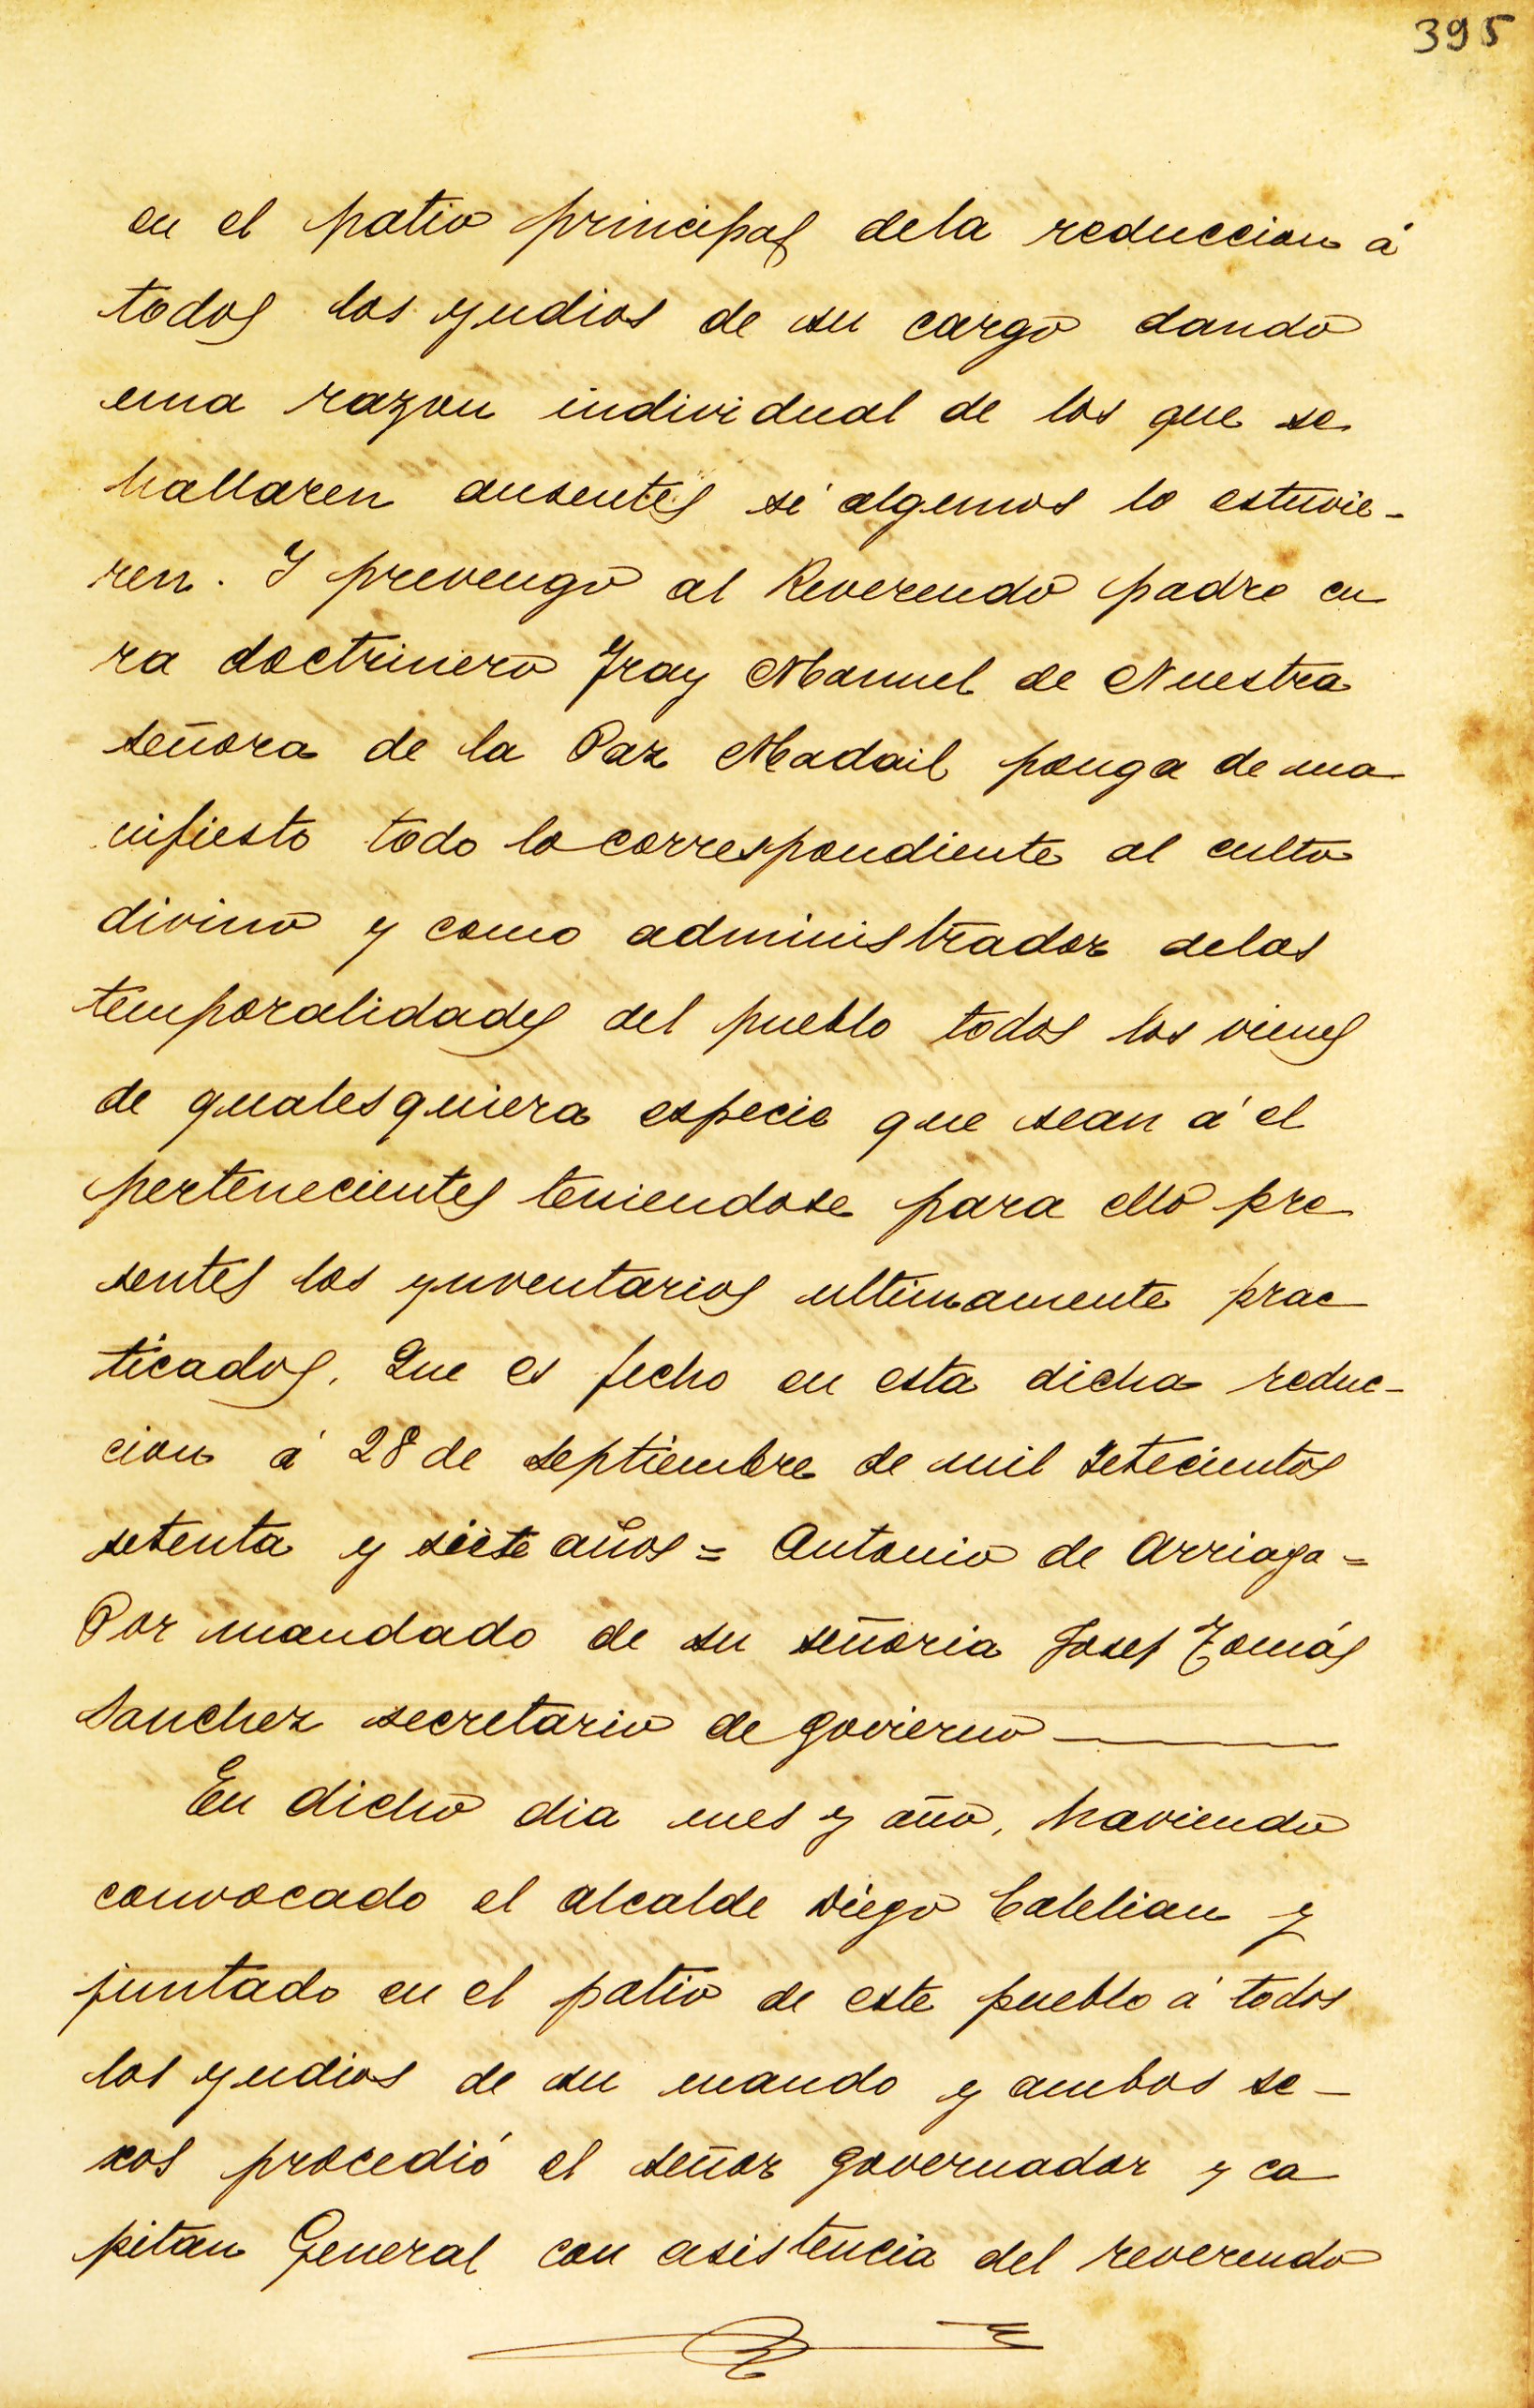 395
en el patio principal dela reduccion á
todos los yndios de su cargo dando
una razon individual de los que se
hallaren ausentes si algunos lo estuvie-
ren. Y prevengo al Reverendo padre cu
ra doctrinero Fray Manuel de Nuestra
señora de la Paz Madail ponga de ma
nifiesto todo lo correspondiente al culto
divino y como administrador delas
temporalidades del pueblo todos los vienes
de qualesquiera especie que sean á el
pertenecientes teniendose para ello pre
sentes los ynventarios ultimamente prac
ticados. Que es fecho en esta dicha reduc-
cion á 28 de septiembre de mil setecientos
setenta y siete años = Antonio de Arriaga =
Por mandado de su señoria Josef Tomás
Sanchez secretario de govierno
En dicho dia mes y año, haviendo
convocado el alcalde Diego Calelian y
juntado en el patio de este pueblo á todos
los yndios de su mando y ambos se-
xos procedió el señor governador y ca
pitan General con asistencia del reverendo